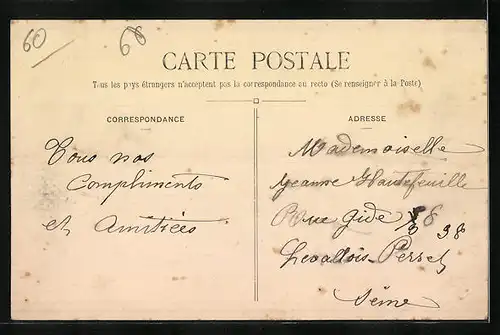 60
68
CARTE POSTALE
Tous les pays étrangers n'acceptent pas la correspondance au recto (Se renseigner à la Poste)
CORRESPONDANCE
Tous nos
Compliments
et Amitiées
ADRESSE
Mademoiselle
Jeanne Hautefeuille
Rue Gide 38
Levallois-Perret
Seine